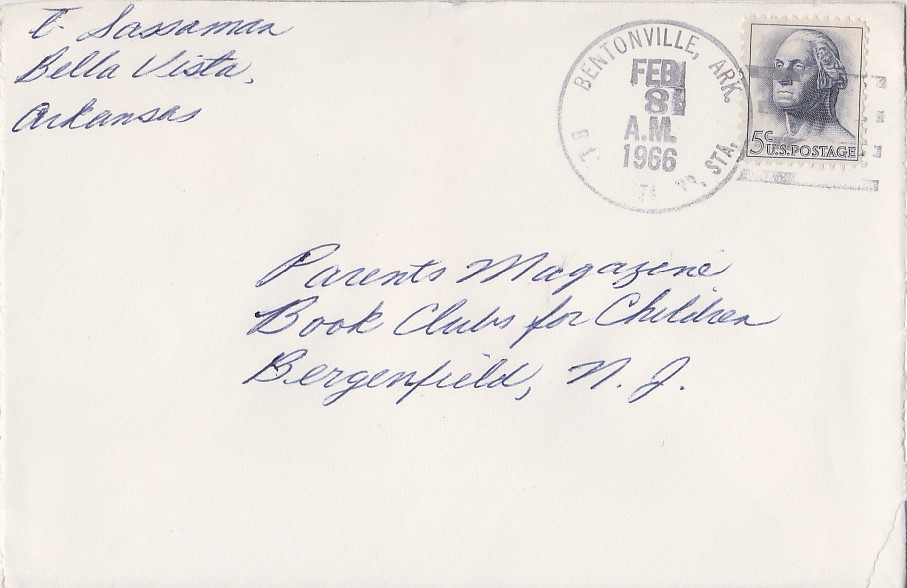 T. Sassaman
Bella Vista,
Arkansas
BENTONVILLE, ARK.
FEB
8
A.M.
1966
STA.
5c
U.S. POSTAGE
Parents Magazine
Book Clubs for Children
Bergenfield, N. J.